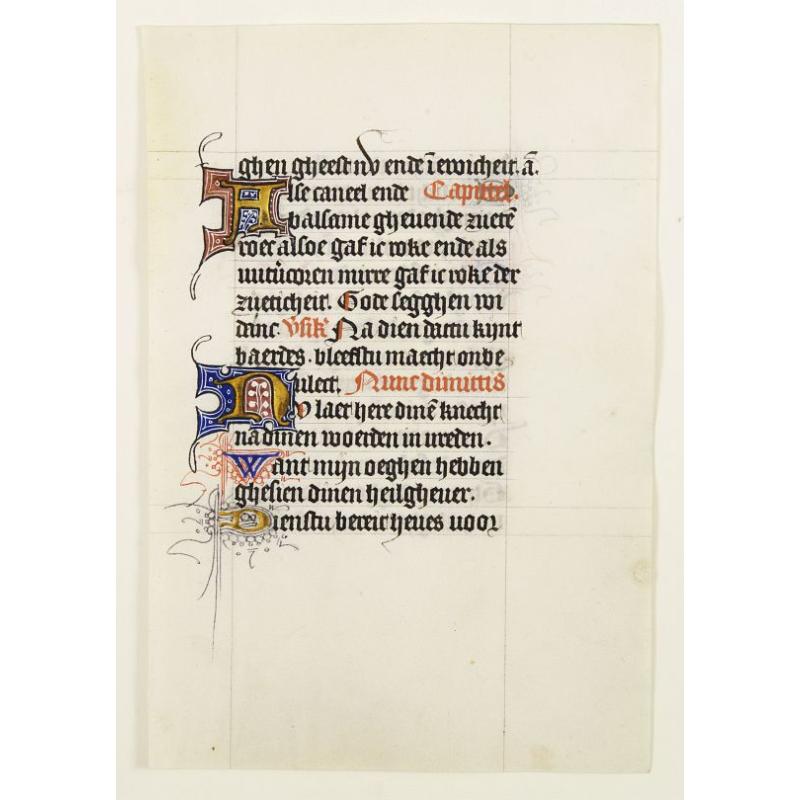 ghen gheest nv ende ī ewicheit. ā.
Alse caneel ende Capittel.
balsame gheuende zuetē
roec alsoe gaf ic roke ende als
mirre gaf ic roke der
zueticheit. Gode segghen wi
danc. Na dien dattu kynt
baerdes. bleefstu maecht onbe
ulect. Nunc dimittis
Nv laet here dinē knecht
na dinen woerden in vreden.
Want mijn oeghen hebben
ghesien dinen heilghever.
Dienstu bereit heues voor